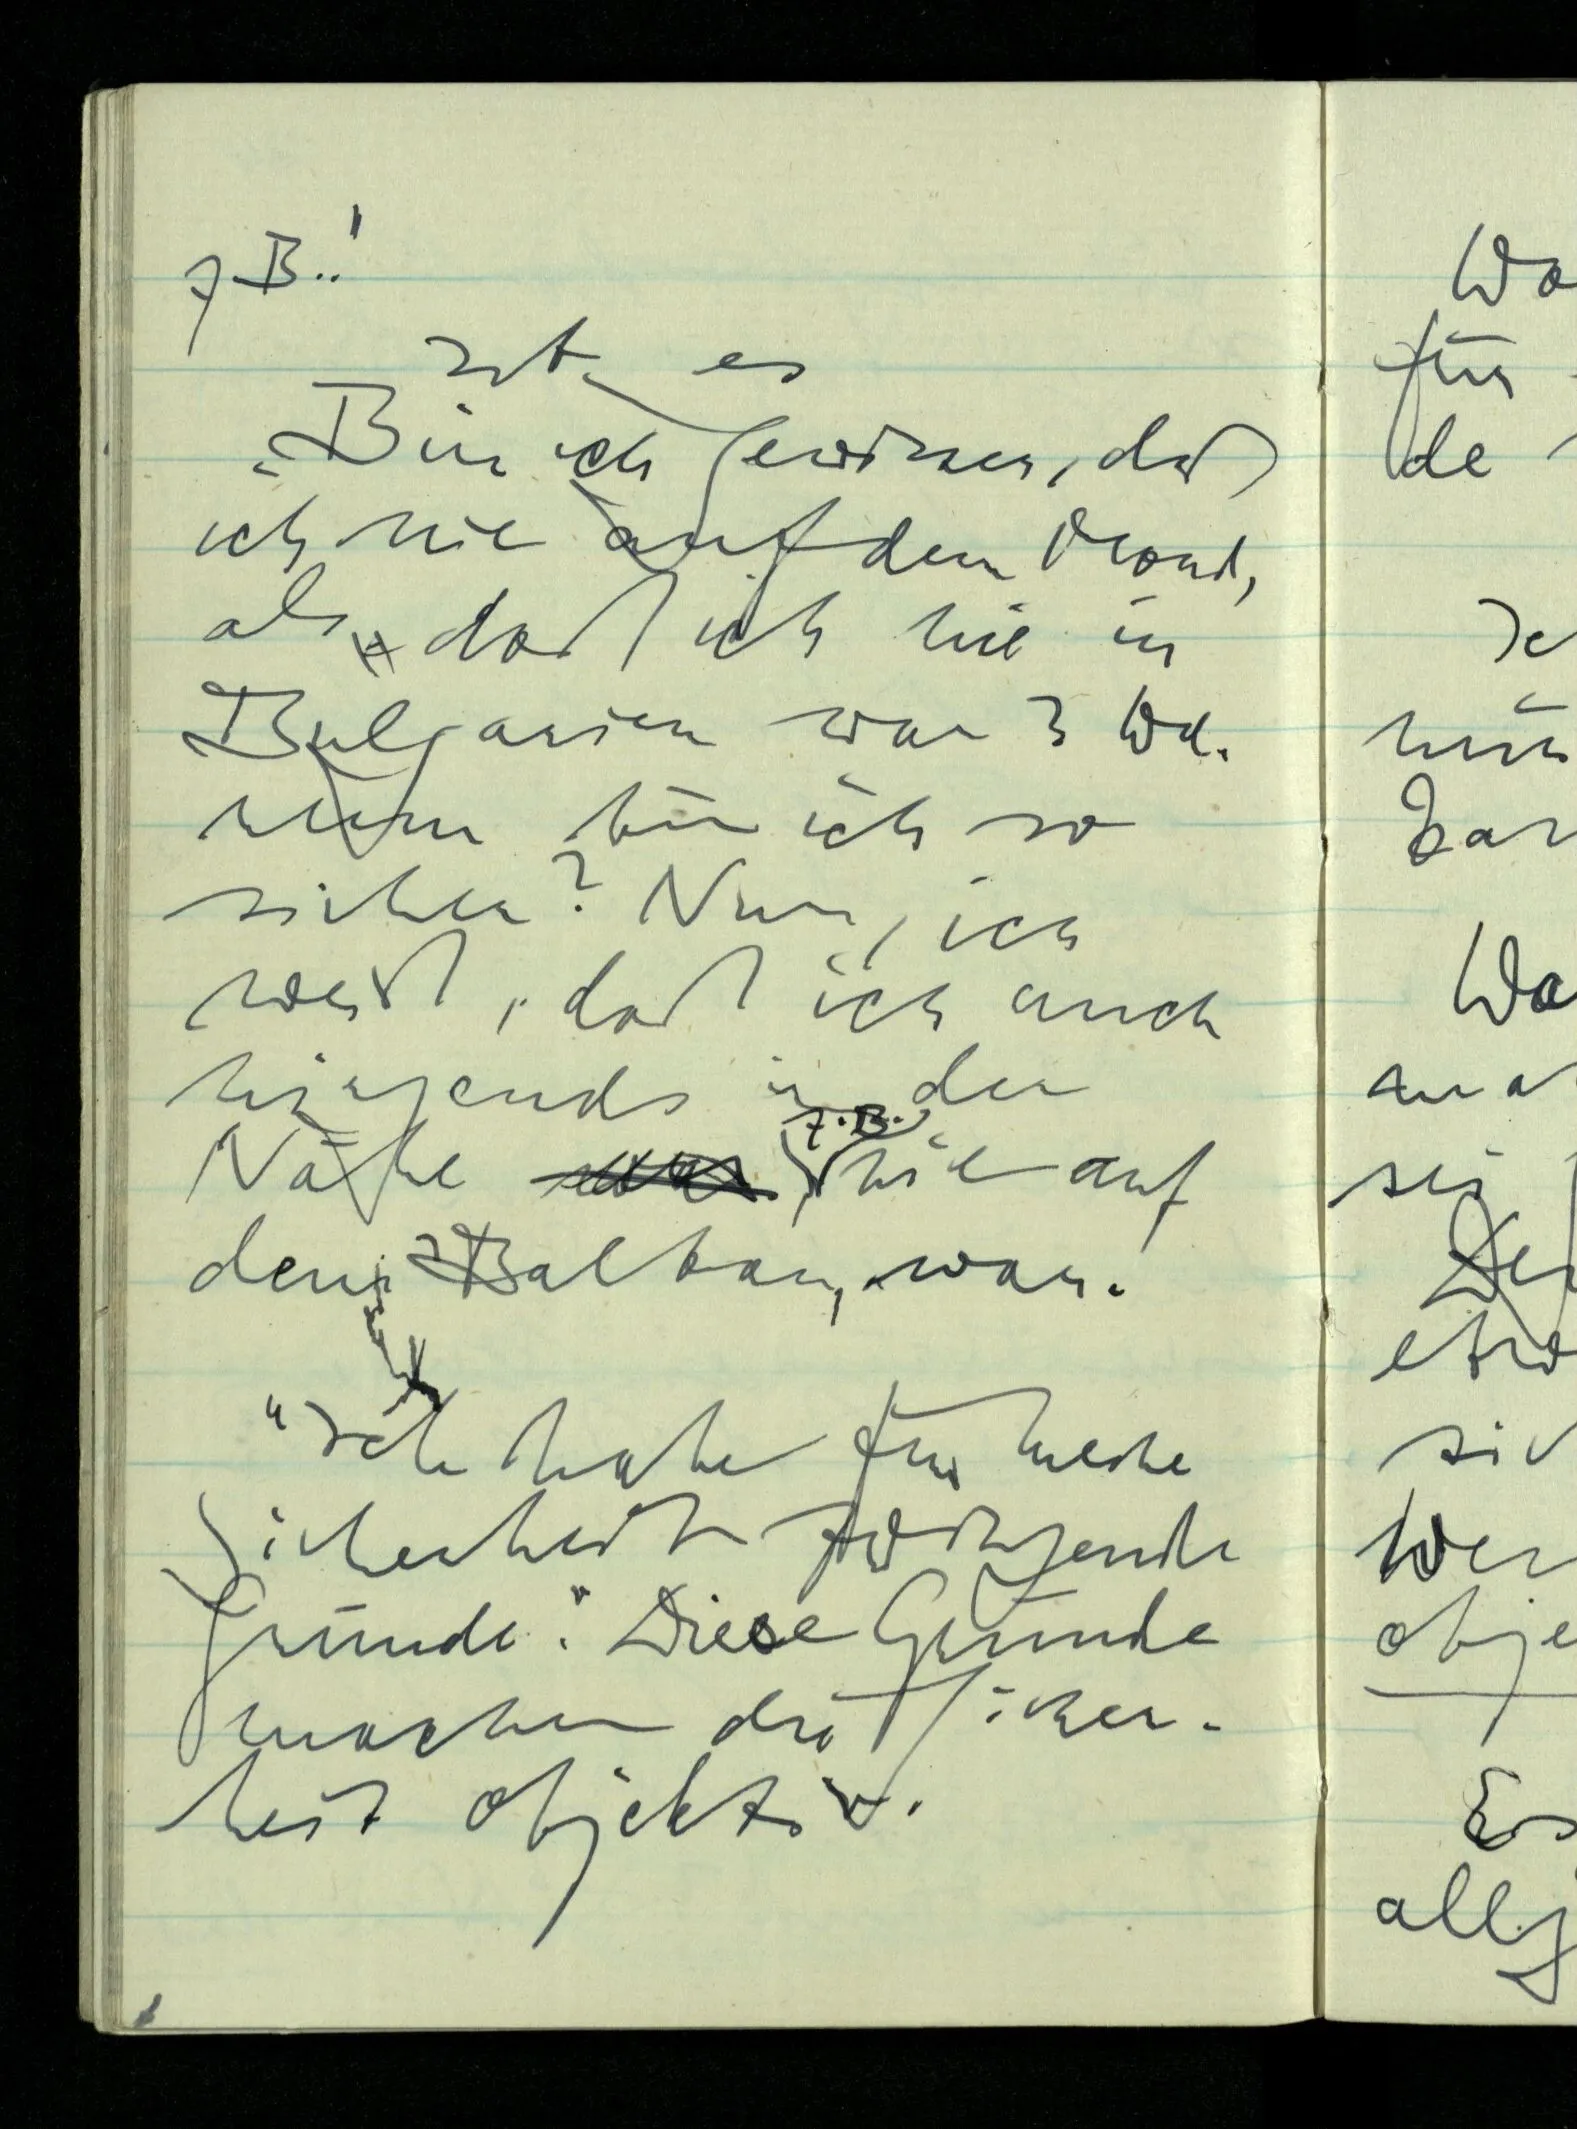 z.B.:
Ist es
„Bin ich gewisser, daß
ich nie auf dem Mond,
als daß ich nie in
Bulgarien war? Wa-
rum bin ich so
sicher? Nun, ich
weiß, daß ich auch
nirgends in der
z.B.
Nähe, nie auf
dem Balkan, war.
"Ich habe für meine
Sicherheit zwingende
Gründe." Diese Gründe
machen die Sicher-
heit objektiv.
Wa
für
de
Wa
sei
etw
sic
Wer
obje
Es
all